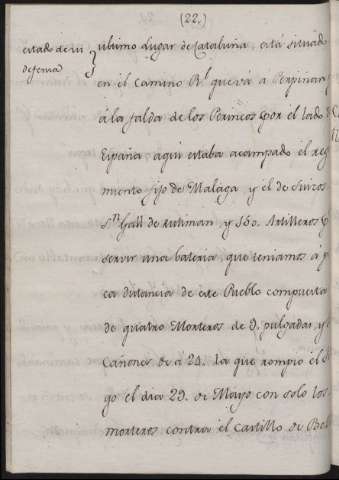 (22.)
estado de su
defensa
ultimo Lugar de Cataluña, está situado
en el Camino Rl. que vá á Perpiñan
á la falda de los Perineos por el lado
España; aqui estaba acampado el reg
miento fijo de Malaga, y el de Suizos
Sn. Gall de rutiman, y 150. Artilleros p
servir una bateria, que teniamos á p
ca distancia de este Pueblo compuesta
de quatro Morteros de 9. pulgadas, y
Cañones de a 24. la que rompio el
go el dia 29. de Mayo con solo los
morteros contra el Castillo de Bel